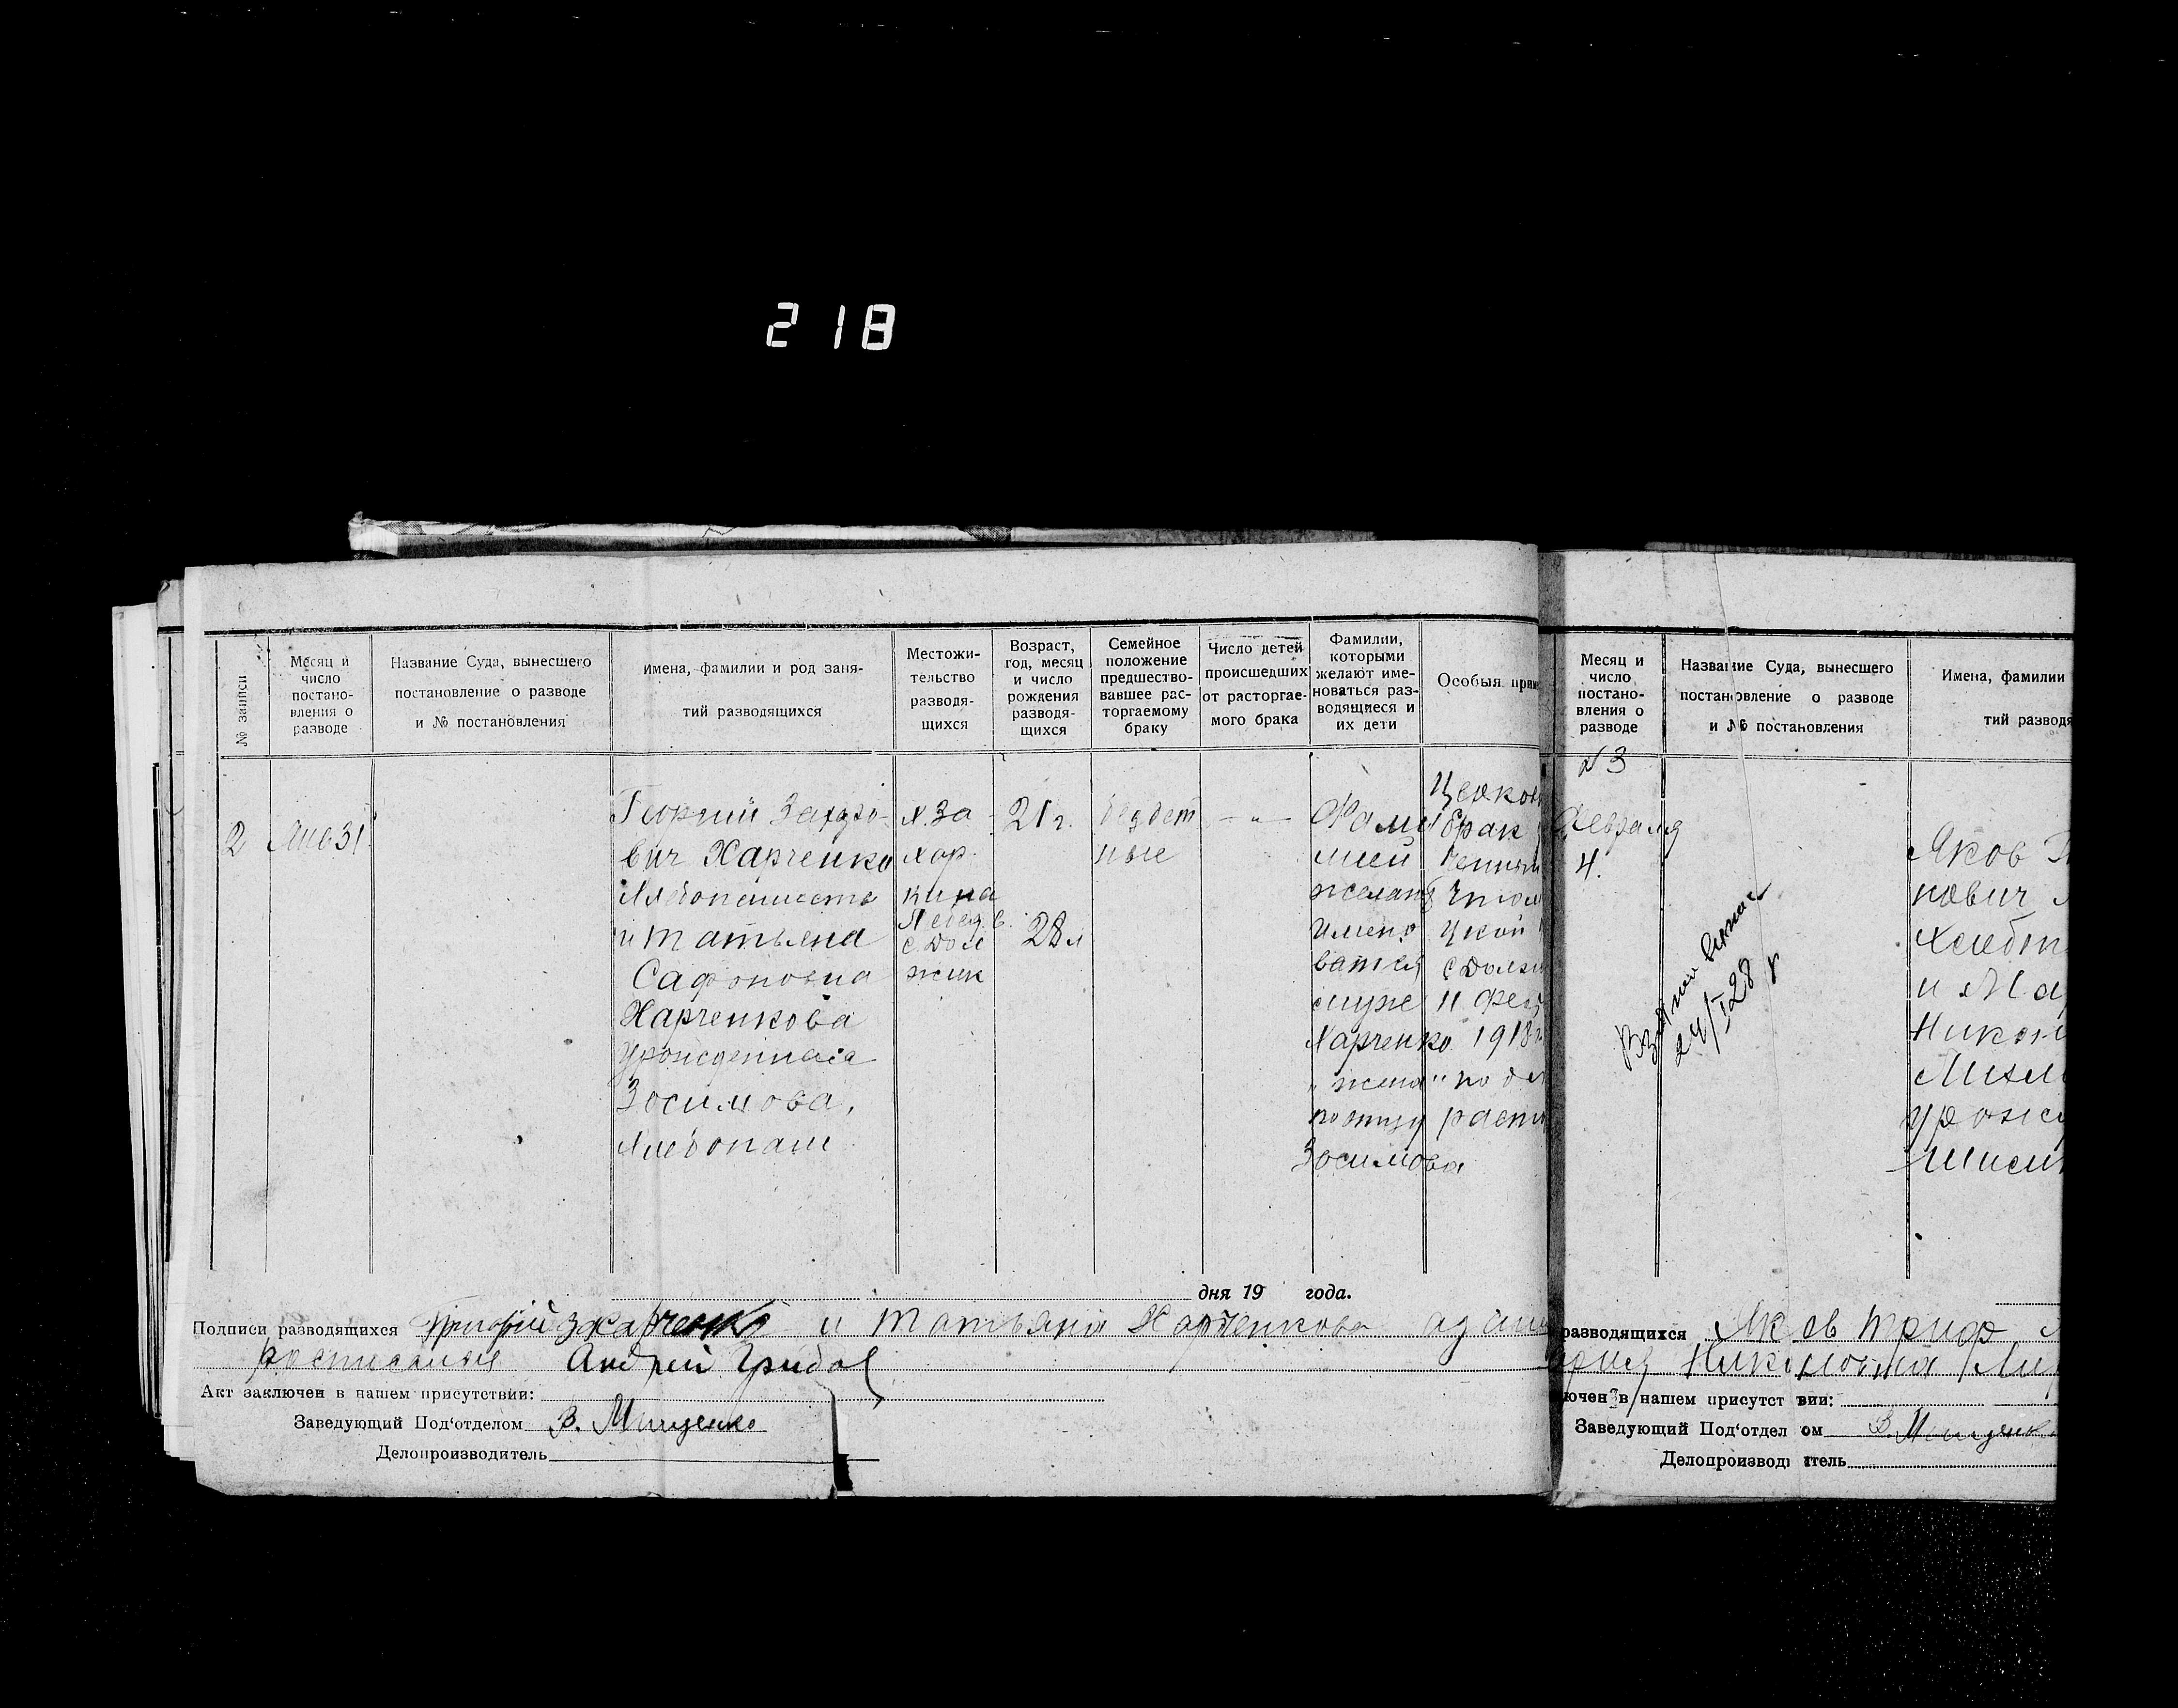 218
№ записи
Месяц и число постано- вления о разводе
Название Суда, вынесшего постановление о разводе и № постановления
Имена, фамилии и род заня- тий разводящихся
Местожи- тельство разводя- щихся
Возраст, год, месяц и число рождения разводя- щихся
Семейное положение предшество- вавшее рас- торгаемому браку
Число детей происшедших от расторгае- мого брака
Фамилии, которыми желают име- новаться раз- водящиеся и их дети
Особыя прим
2
Янв 31
Георгий Захаро-
вич Харченко
Хлебопашество
и Татьяна
Сафоновна
Харченкова
урожденная
Зосимова,
Хлебопаш
х. За
хар
кина
с Дол
жик
21 г.
28 л
бездет
ные
— „ —
Фами
лией
желают
имено
ватся
муже
Харченко
„ жена "
по отцу
Зосимова
Церков
брак
цкой
с Долж
11 Фев
1918 г
раст
дня 19 года.
Подписи разводящихся Григорий Харченко и Татьяна Харченкова
Андрей Грибов
Акт заключен в нашем присутствии:
Заведующий Под'отделом В. Мищенко
Делопроизводитель
Месяц и число постано- вления о разводе
Название Суда, вынесшего постановление о разводе и № постановления
Имена, фамилии
тий разводя
№ 3
Февраля
4.
24/I 28 г
Яков
нович
Хлебоп
и Ма
Никол
урожд
разводящихся Яков Триф
Николаевна
ючен в нашем присутствии:
Заведующий Под'отделом В. Мищенк
Делопроизводитель